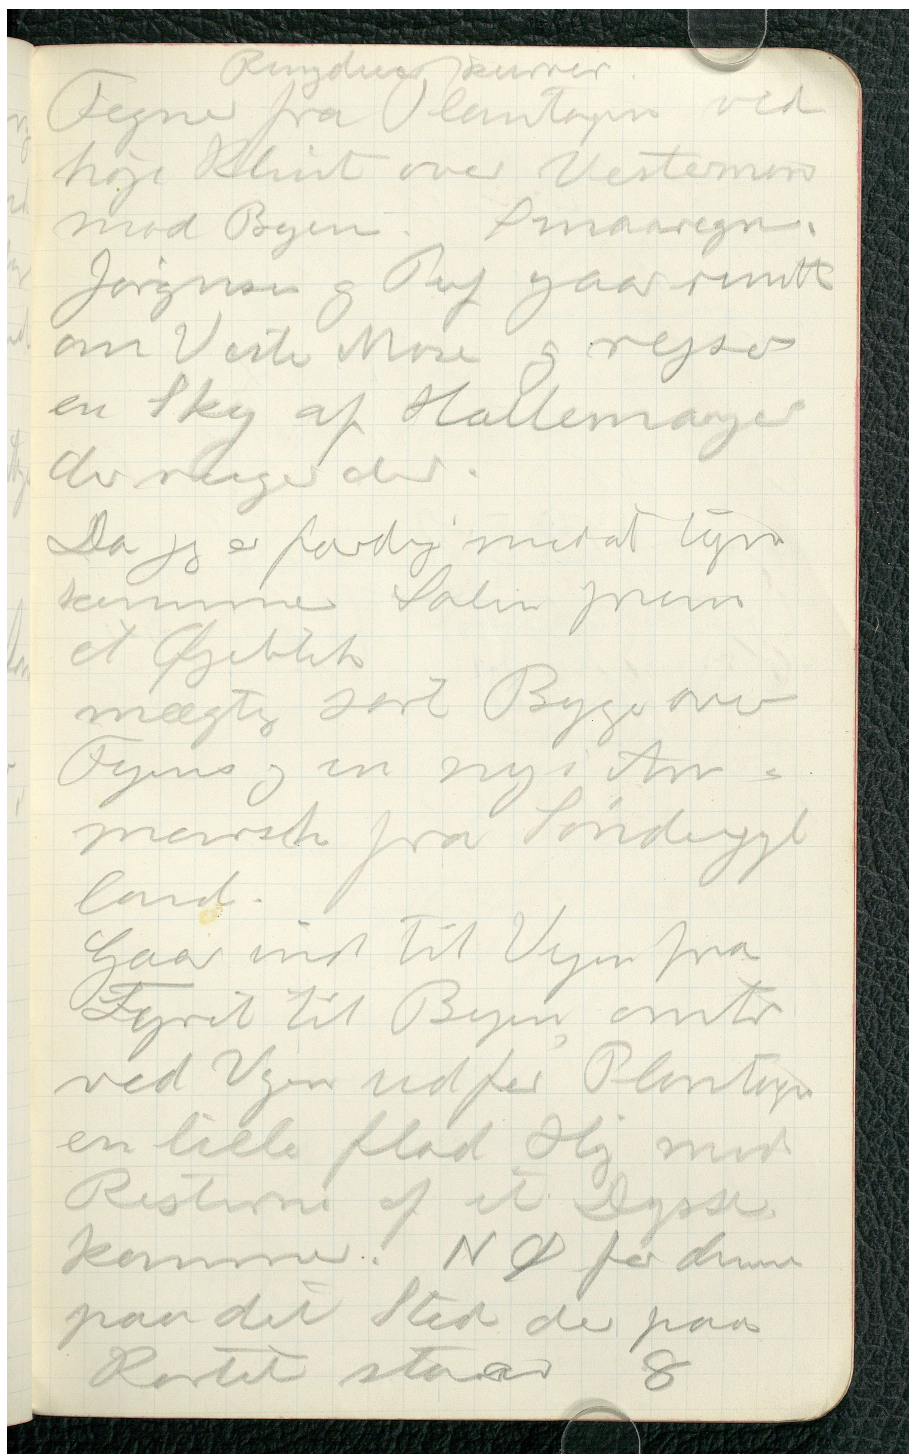 Ringduer kurrer.
Tegner fra Plantagen ved
høje Klint over Vestermose
mod Byen. Smaaregn.
Jørgensen og Puf gaar rundt
om Veste Mose og rejser
en Sky af Hættemaager
der ruger der.
Da jeg er færdig med at tegne
kommer Solen frem
et Øjeblik
mægtig sort Byge over
Fyens og en ny i An=
marsch fra Sønderjyl
land.
Gaar ind til Vejen fra
Fyret til Byen, omtr
ved Vejen ud for Plantagen
en lille flad Høj med
Resterne af et Dysse
kammer. NØ for denne
paa det Sted der paa
Kortet staar 8